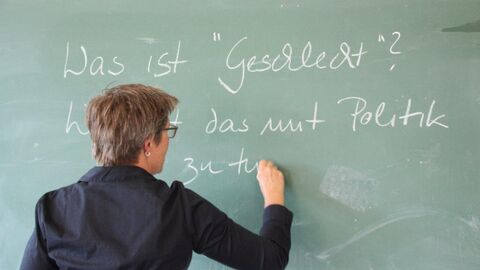 Was ist "Geschlecht"?
das mit Politik
zu tu